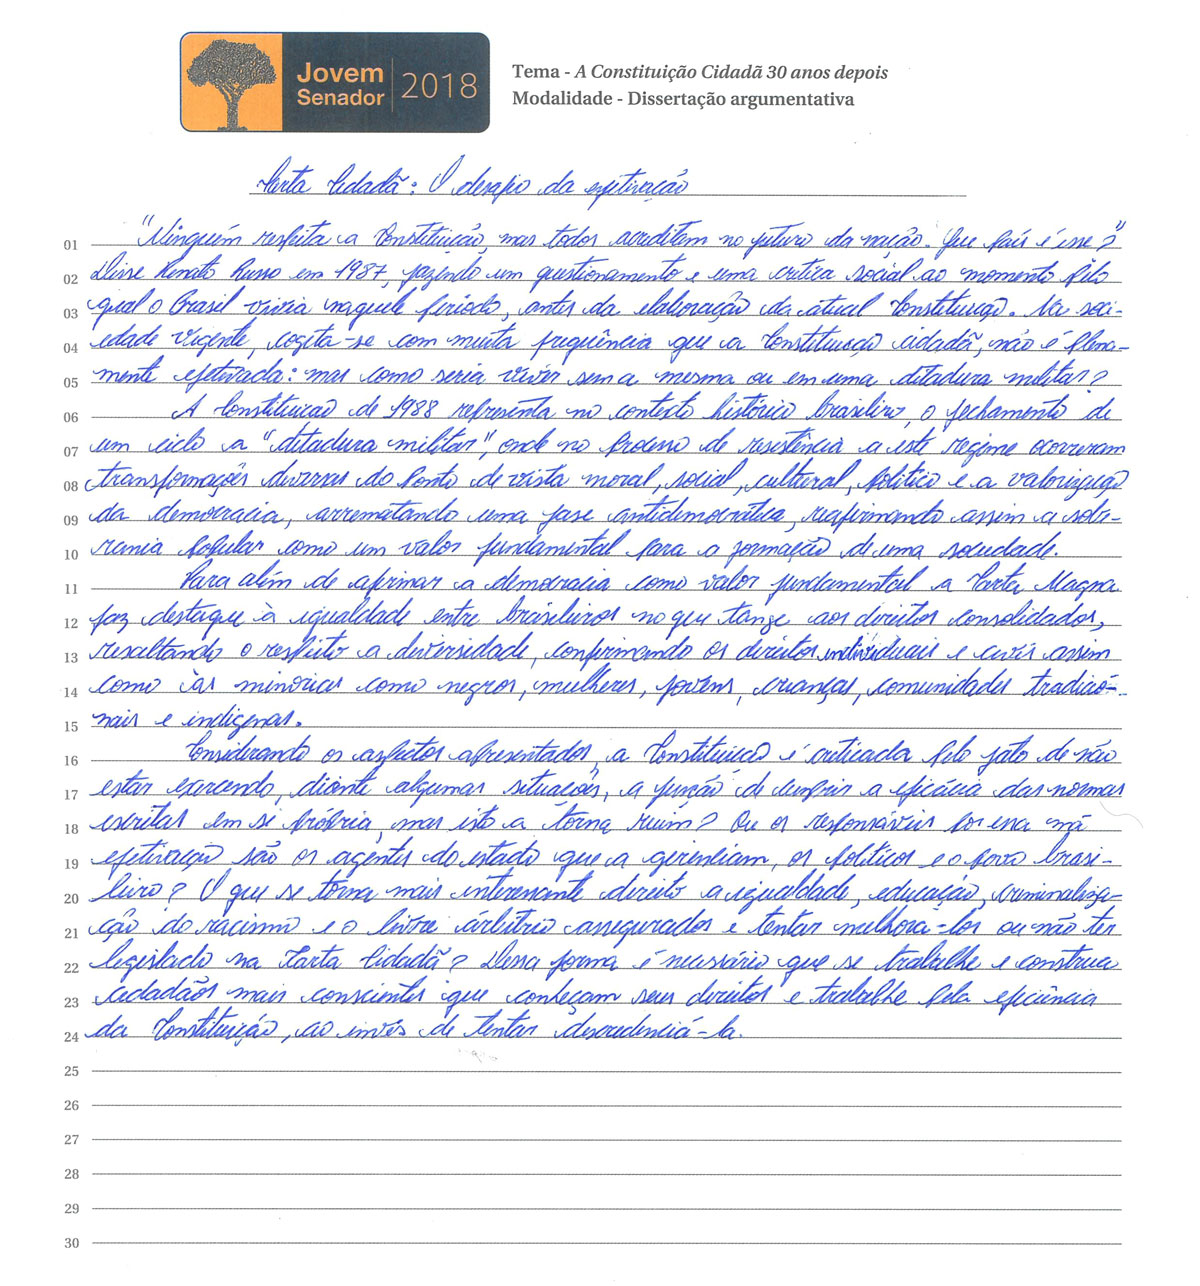 Jovem
Senador
2018
Tema - A Constituição Cidadã 30 anos depois
Modalidade - Dissertação argumentativa
Carta Cidadã: O desafio da efetivação
01 "Ninguém respeita a Constituição, mas todos acreditam no futuro da nação. Que país é esse?"
02 Disse Renato Russo em 1987, fazendo um questionamento e uma crítica social ao momento pelo
03 qual o Brasil vivia naquele período, antes da elaboração da atual Constituição. Na soci-
04 edade vigente, cogita-se com muita frequência que a Constituição cidadã, não é plena-
05 mente efetivada: mas como seria viver sem a mesma ou em uma ditadura militar?
06 A Constituição de 1988 representa no contexto histórico brasileiro, o fechamento de
07 um ciclo a "ditadura militar", onde no processo de resistência a este regime ocorreram
08 transformações diversas do ponto de vista moral, social, cultural, político e a valorização
09 da democracia, arrematando uma fase antidemocrática, reafirmando assim a sobe-
10 rania popular como um valor fundamental para a formação de uma sociedade.
11 Para além de afirmar a democracia como valor fundamental a Carta Magna
12 faz destaque à igualdade entre brasileiros no que tange aos direitos consolidados,
13 resaltando o respeito a diversidade, confirmando os direitos individuais e civis assim
14 como às minorias como negros, mulheres, jovens, crianças, comunidades tradicio-
15 nais e indígenas.
16 Considerando os aspectos apresentados, a Constituição é criticada pelo fato de não
17 estar exercendo, diante algumas situações, a função de cumprir a eficácia das normas
18 escritas em se própria, mas isto a torna ruim? Ou os responsáveis por essa má
19 efetivação são os agentes do estado que a gerenciam, os políticos e o povo brasi-
20 leiro? O que se torna mais interessante direito a igualdade, educação, criminaliza-
21 ção do racismo e o livre árbitrio assegurados e tentar melhorá-los ou não ter
22 legislado na Carta Cidadã? Dessa forma é necessário que se trabalhe e construa
23 cidadãos mais conscientes que conheçam seus direitos e trabalhe pela eficiência
24 da Constituição, ao invés de tentar descredenciá-la.
25
26
27
28
29
30